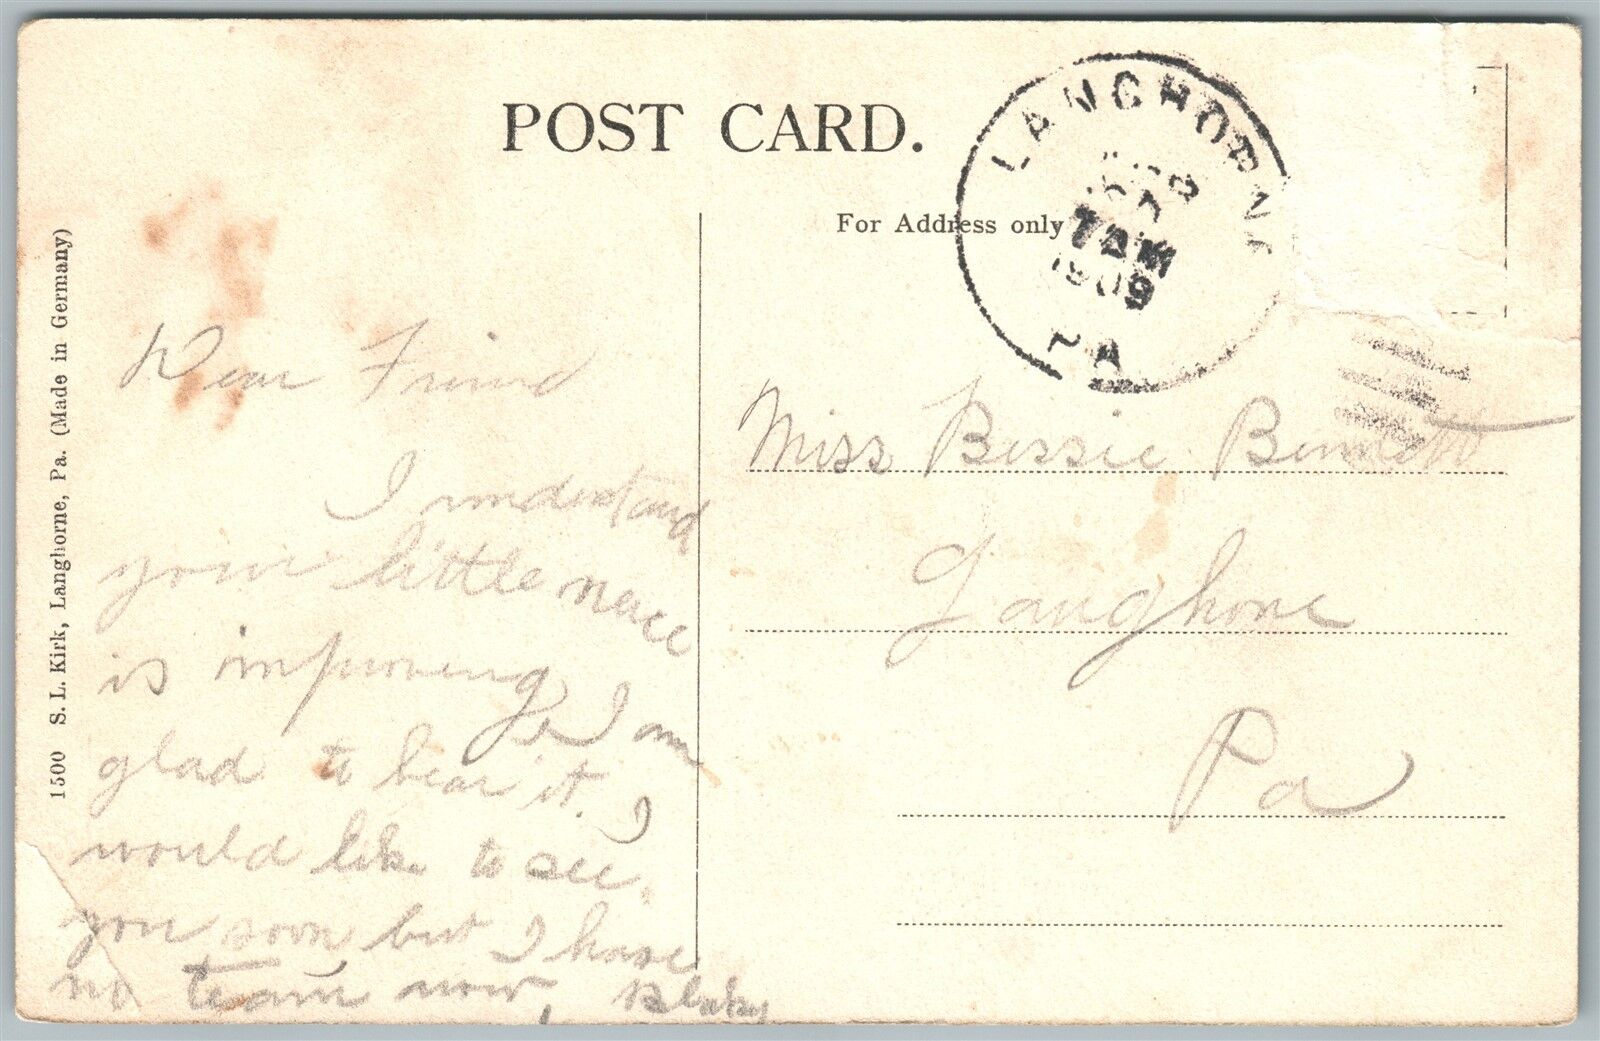 POST CARD.
For Address only
LANGHORNE
7 AM
1909
PA
1500 S. L. Kirk, Langhorne, Pa. (Made in Germany)
Dear Friend
I understand
your little neice
is improving I am
glad to hear it. I
would like to see
you soon but I have
no team now,
Miss Bessie Bennett
Langhorne
Pa